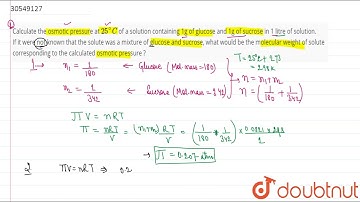 30549127
Calculate the osmotic pressure at 25°C of a solution containing 1g of glucose and 1g of sucrose in 1 litre of solution.
If it were not known that the solute was a mixture of glucose and sucrose, what would be the molecular weight of solute
corresponding to the calculated osmotic pressure ?
1 → n₁ = 1/180 ← Glucose (Mol. mass = 180)
T = 25 + 273
= 298 K
n = n₁ + n₂
n₂ = 1/342 ← Sucrose (Mol. mass = 342)
n = (1/180 + 1/342)
πV = nRT
π = nRT/V = (n₁+n₂) RT/V = (1/180 + 1/342) × 0.0821 × 298/1
→ π = 0.207 atm
2 πV = nRT ⇒ 0.2
doubtnut